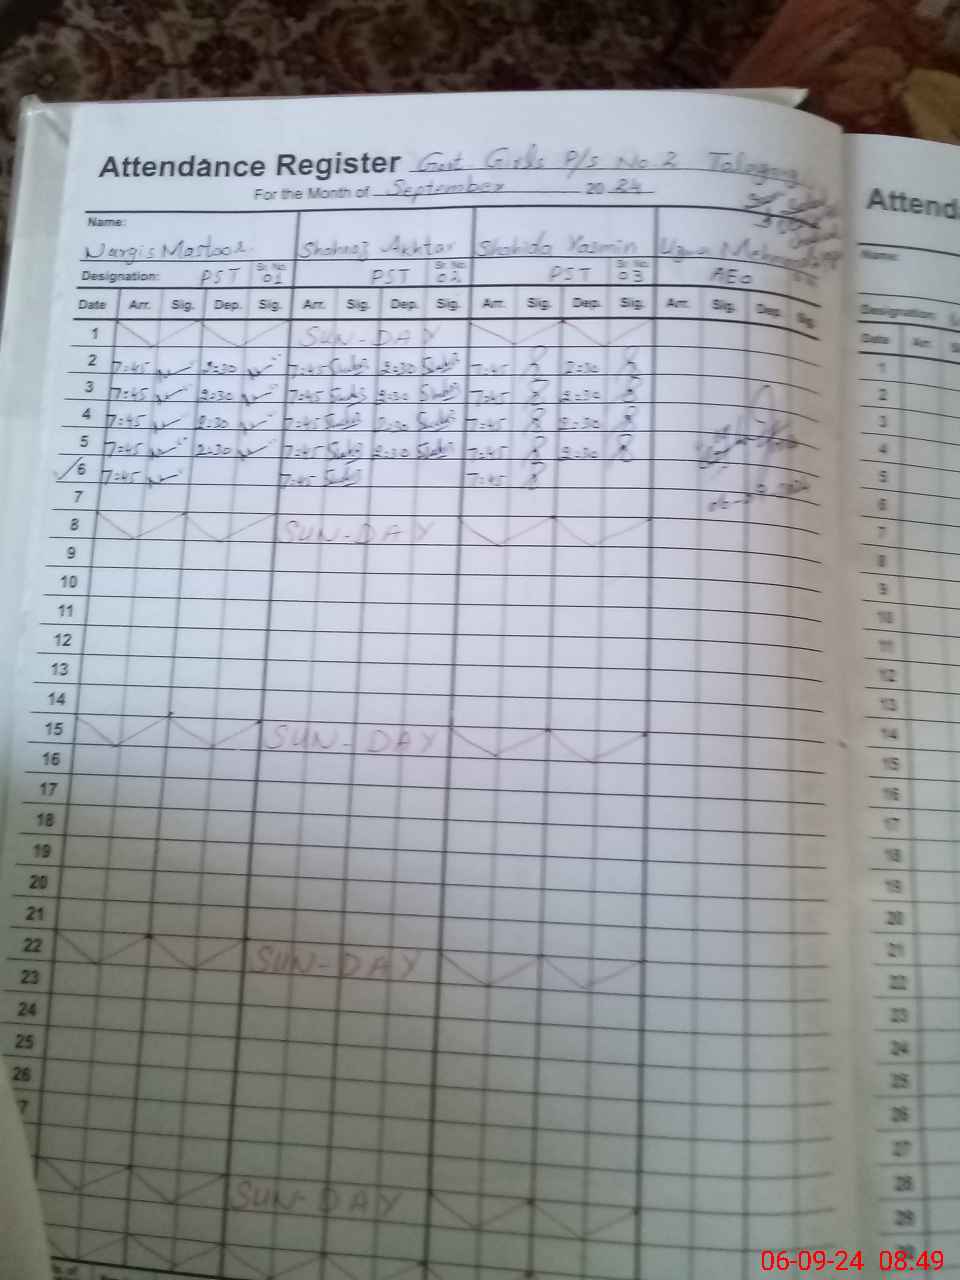 Attendance Register Govt Girls P/s No. 2 Talagang
For the Month of September 2024
Name:
Nargis Mastoor. Shahnaz Akhtar Shahida Yasmin Uzma
Designation: PST Sr. No. 01 PST Sr. No. 02 PST Sr. No. 03 AEO
Date Arr. Sig. Dep. Sig. Arr. Sig. Dep. Sig. Arr. Sig. Dep. Sig. Arr. Sig. Dep. Sig.
1 SUN-DAY
2 7:45 2:30 7:45 2:30 7:45 2:30
3 7:45 2:30 7:45 2:30 7:45 2:30
4 7:45 2:30 7:45 2:30 7:45 2:30
5 7:45 2:30 7:45 2:30 7:45 2:30
6 7:45 7:45 7:45
7
8 SUN-DAY
9
10
11
12
13
14
15 SUN-DAY
16
17
18
19
20
21
22 SUN-DAY
23
24
25
26
7
SUN-DAY
Attend
Name:
Designation:
Date Arr.
1
2
3
4
5
6
7
8
9
10
11
12
13
14
15
16
17
18
19
20
21
22
23
24
25
26
27
28
29
06-09-24 08:49